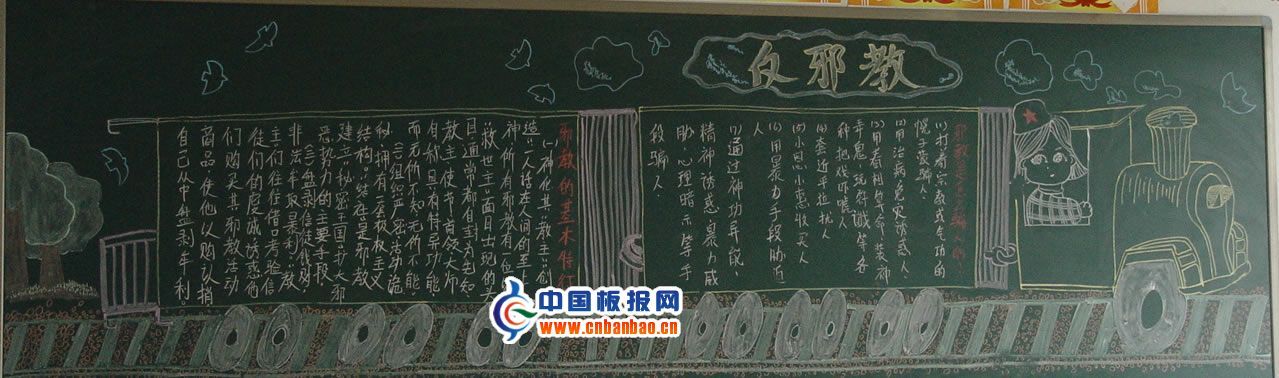 反邪教
邪教是怎么骗人的？
(1)打着宗教或气功的
幌子蒙骗人
(2)用治病免灾诱惑人、
(3)用看相算命、装神
弄鬼、玩符谶等各
种把戏吓唬人
(4)套近乎拉拢人
(5)小恩小惠收买人
(6)用暴力手段胁迫
人
(7)通过神功异说、
精神诱惑、暴力威
胁、心理暗示等手
段骗人
邪教的基本特征
(一)神化其"教主",创
造"人话达人间创至
神",所有邪教有一位
"救世主"面目出现的头
目,通常都自封为先知、
教主、使节、首领、大师
自称具有特异功能,
而无所不知、无所不能.
(二)组织严密,活动诡
秘,拥有一套极权主义
结构,往往是邪教
建立"秘密王国"扩大邪
恶势力的主要手段.
(三)盘录信徒钱财,
非法牟取暴利,教
主们往往借口考验信
徒们的虔诚诱惑他
们购买其邪教活动
商品,使他以购认捐
自己从中盘剥牟利.
中国板报网
www.cnbanbao.cn